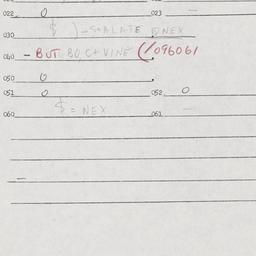 022 0 023 —
030 $ ) - NEX
040 - BUT 80, C + VINE (1096061
050 0
051 0 052 0
060 $ = NEX 061